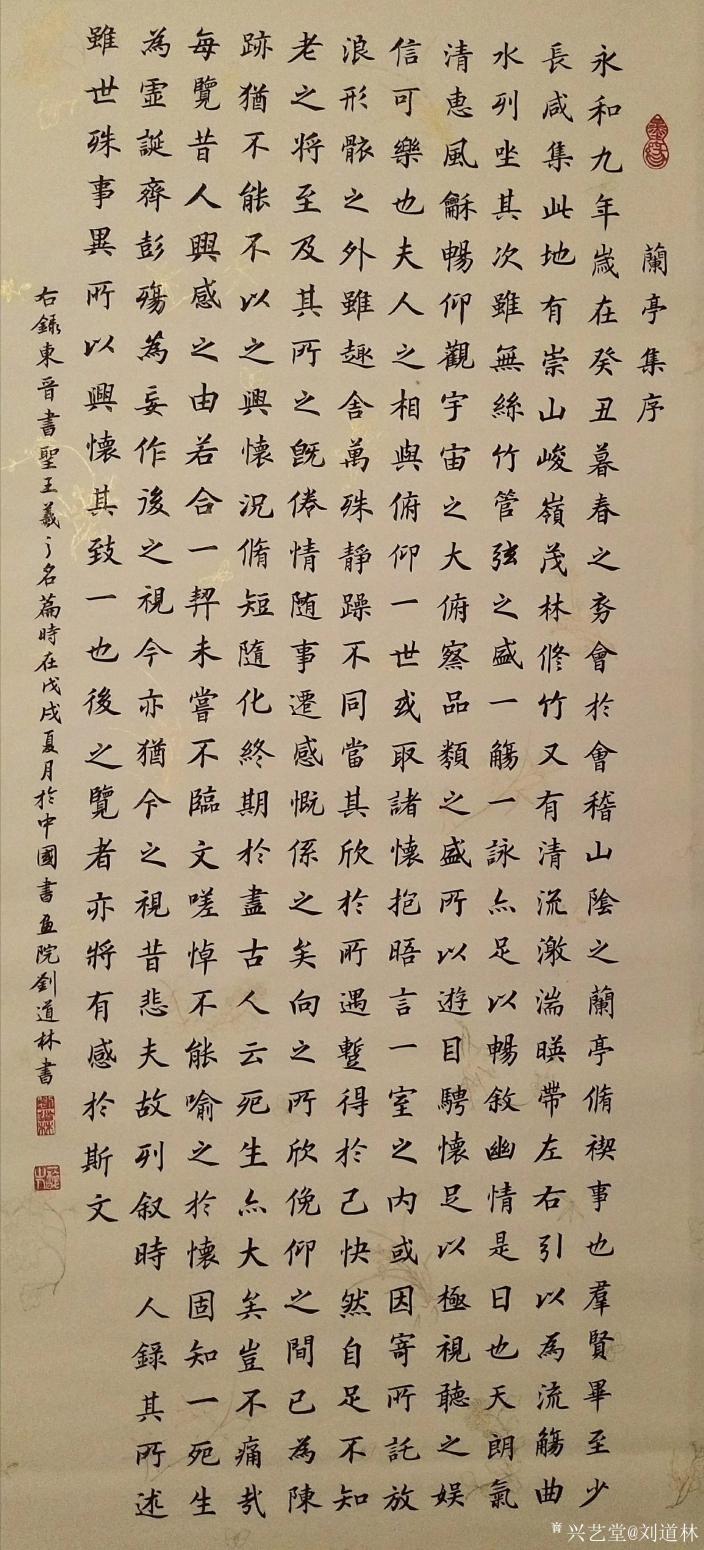 蘭亭集序
永和九年歲在癸丑暮春之初會於會稽山陰之蘭亭脩禊事也羣賢畢至少
長咸集此地有崇山峻嶺茂林修竹又有清流激湍暎帶左右引以為流觴曲
水列坐其次雖無絲竹管弦之盛一觴一詠亦足以暢敘幽情是日也天朗氣
清惠風龢暢仰觀宇宙之大俯察品類之盛所以遊目騁懷足以極視聽之娛
信可樂也夫人之相與俯仰一世或取諸懷抱晤言一室之內或因寄所託放
浪形骸之外雖趣舍萬殊靜躁不同當其欣於所遇暫得於己快然自足不知
老之將至及其所之既倦情隨事遷感慨係之矣向之所欣俛仰之間已為陳
跡猶不能不以之興懷況脩短隨化終期於盡古人云死生亦大矣豈不痛哉
每覽昔人興感之由若合一契未嘗不臨文嗟悼不能喻之於懷固知一死生
為虛誕齊彭殤為妄作後之視今亦猶今之視昔悲夫故列叙時人錄其所述
雖世殊事異所以興懷其致一也後之覽者亦將有感於斯文
右錄東晉書聖王羲之名篇時在戊戌夏月於中國書畫院劉道林書
兴艺堂@刘道林